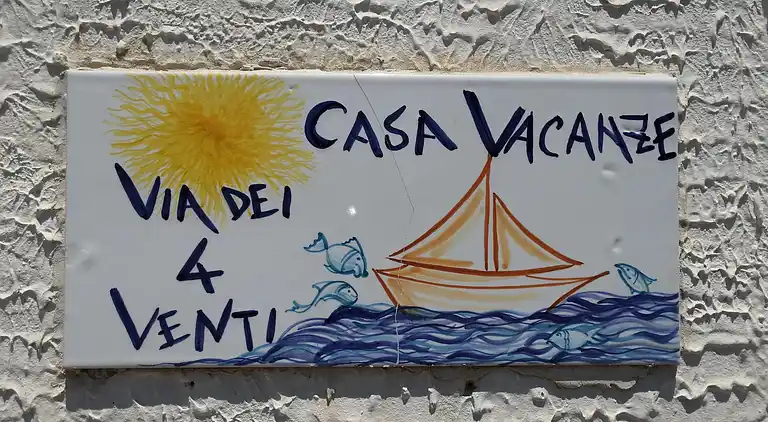 CASA VACANZE
VIA DEI
4
VENTI